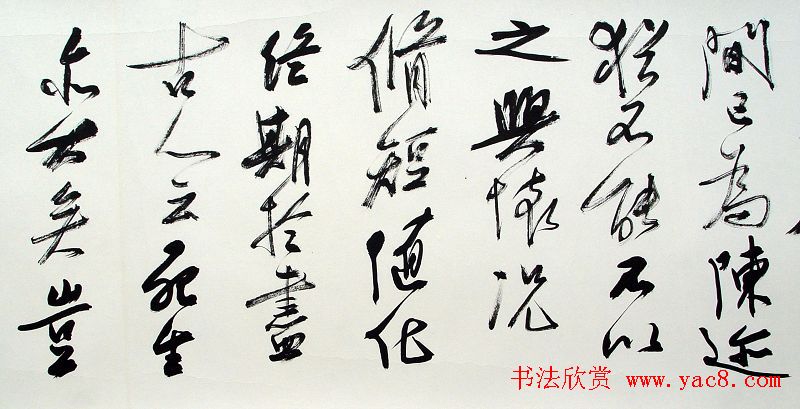 間已為陳迹
猶不能不以
之興懷況
脩短随化
終期於盡
古人云死生
亦大矣豈
书法欣赏 www.yac8.com